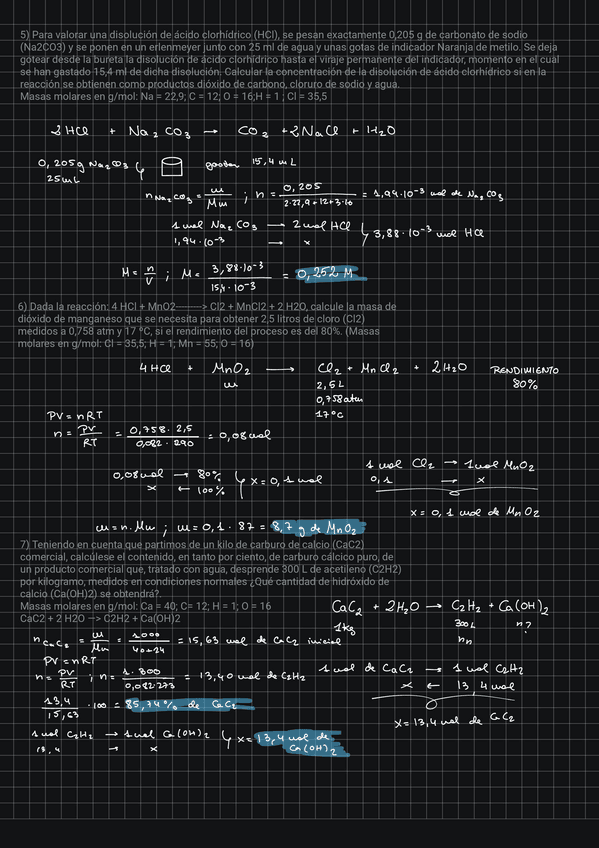 5) Para valorar una disolución de ácido clorhídrico (HCl), se pesan exactamente 0,205 g de carbonato de sodio
(Na2CO3) y se ponen en un erlenmeyer junto con 25 ml de agua y unas gotas de indicador Naranja de metilo. Se deja
gotear desde la bureta la disolución de ácido clorhídrico hasta el viraje permanente del indicador, momento en el cual
se han gastado 15,4 ml de dicha disolución. Calcular la concentración de la disolución de ácido clorhídrico si en la
reacción se obtienen como productos dióxido de carbono, cloruro de sodio y agua.
Masas molares en g/mol: Na = 22,9; C = 12; O = 16;H = 1 ; Cl = 35,5
2HCl + Na2CO3 → CO2 + 2NaCl + H2O
0,205g Na2CO3 gastan 15,4 mL
25mL
nNa2CO3 = m/Mm ; n = 0,205/2·22,9+12+3·16 = 1,94·10⁻³ mol de Na2CO3
1 mol Na2CO3 → 2 mol HCl
1,94·10⁻³ → x 3,88·10⁻³ mol HCl
M = n/V ; M = 3,88·10⁻³/15,4·10⁻³ = 0,252 M
6) Dada la reacción: 4 HCl + MnO2--------> Cl2 + MnCl2 + 2 H2O, calcule la masa de
dióxido de manganeso que se necesita para obtener 2,5 litros de cloro (Cl2)
medidos a 0,758 atm y 17 ºC, si el rendimiento del proceso es del 80%. (Masas
molares en g/mol: Cl = 35,5; H = 1; Mn = 55; O = 16)
4HCl + MnO2 → Cl2 + MnCl2 + 2H2O RENDIMIENTO
m 2,5L 80%
0,758atm
17ºC
PV = nRT
n = PV/RT = 0,758·2,5/0,082·290 = 0,08mol
0,08mol → 80%
x ← 100% x = 0,1 mol
1 mol Cl2 → 1 mol MnO2
0,1 → x
x = 0,1 mol de MnO2
m = n·Mm ; m = 0,1 · 87 = 8,7 g de MnO2
7) Teniendo en cuenta que partimos de un kilo de carburo de calcio (CaC2)
comercial, calcúlese el contenido, en tanto por ciento, de carburo cálcico puro, de
un producto comercial que, tratado con agua, desprende 300 L de acetileno (C2H2)
por kilogramo, medidos en condiciones normales ¿Qué cantidad de hidróxido de
calcio (Ca(OH)2) se obtendrá?.
Masas molares en g/mol: Ca = 40; C= 12; H = 1; O = 16
CaC2 + 2 H2O —> C2H2 + Ca(OH)2
CaC2 + 2H2O → C2H2 + Ca(OH)2
1kg 300L n?
nCaC2 = m/Mm = 1000/40+24 = 15,63 mol de CaC2 inicial
PV = nRT
n = PV/RT ; n = 1·300/0,082·273 = 13,40 mol de C2H2
1 mol de CaC2 → 1 mol C2H2
x ← 13,4mol
x = 13,4 mol de CaC2
13,4/15,63 · 100 = 85,74% de CaC2
1 mol C2H2 → 1 mol Ca(OH)2
13,4 → x x = 13,4 mol de
Ca(OH)2